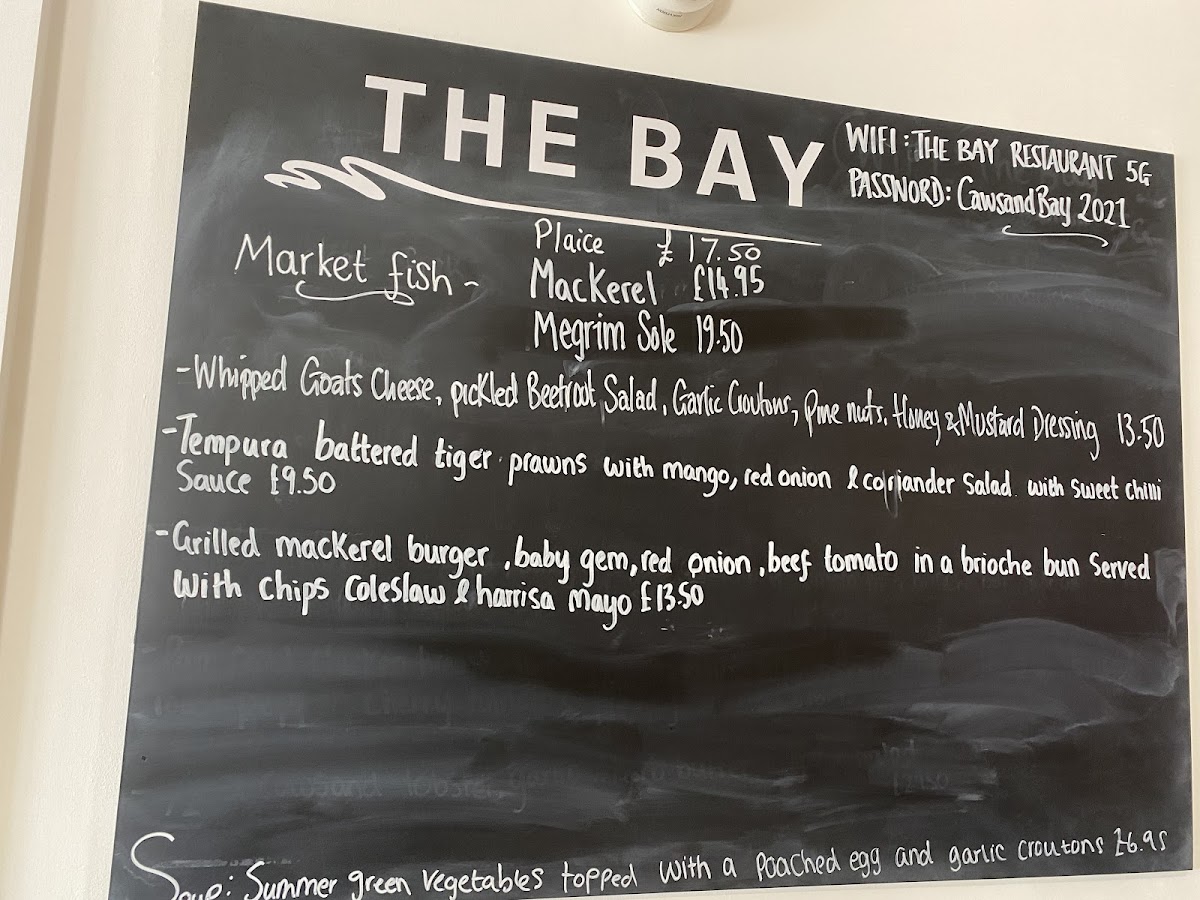 THE BAY
WIFI: THE BAY RESTAURANT 5G
PASSWORD: CawsandBay 2021
Market fish ~
Plaice £17.50
Mackerel £14.95
Megrim Sole 19.50
-Whipped Goats Cheese, pickled Beetroot Salad, Garlic Croutons, pine nuts, Honey & Mustard Dressing 13.50
-Tempura battered tiger prawns with mango, red onion & coriander Salad with sweet chilli
Sauce £9.50
-Grilled mackerel burger, baby gem, red onion, beef tomato in a brioche bun Served
with chips Coleslaw & harrisa Mayo £13.50
Soup: Summer green vegetables topped with a Poached egg and garlic croutons £6.95